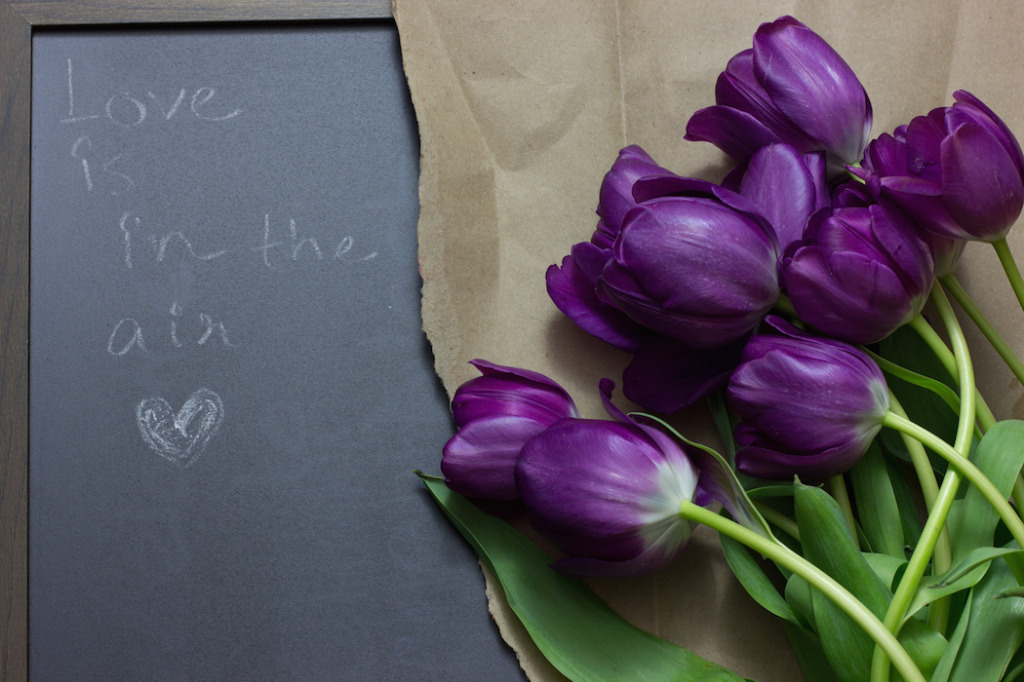 Love
is
in the
air